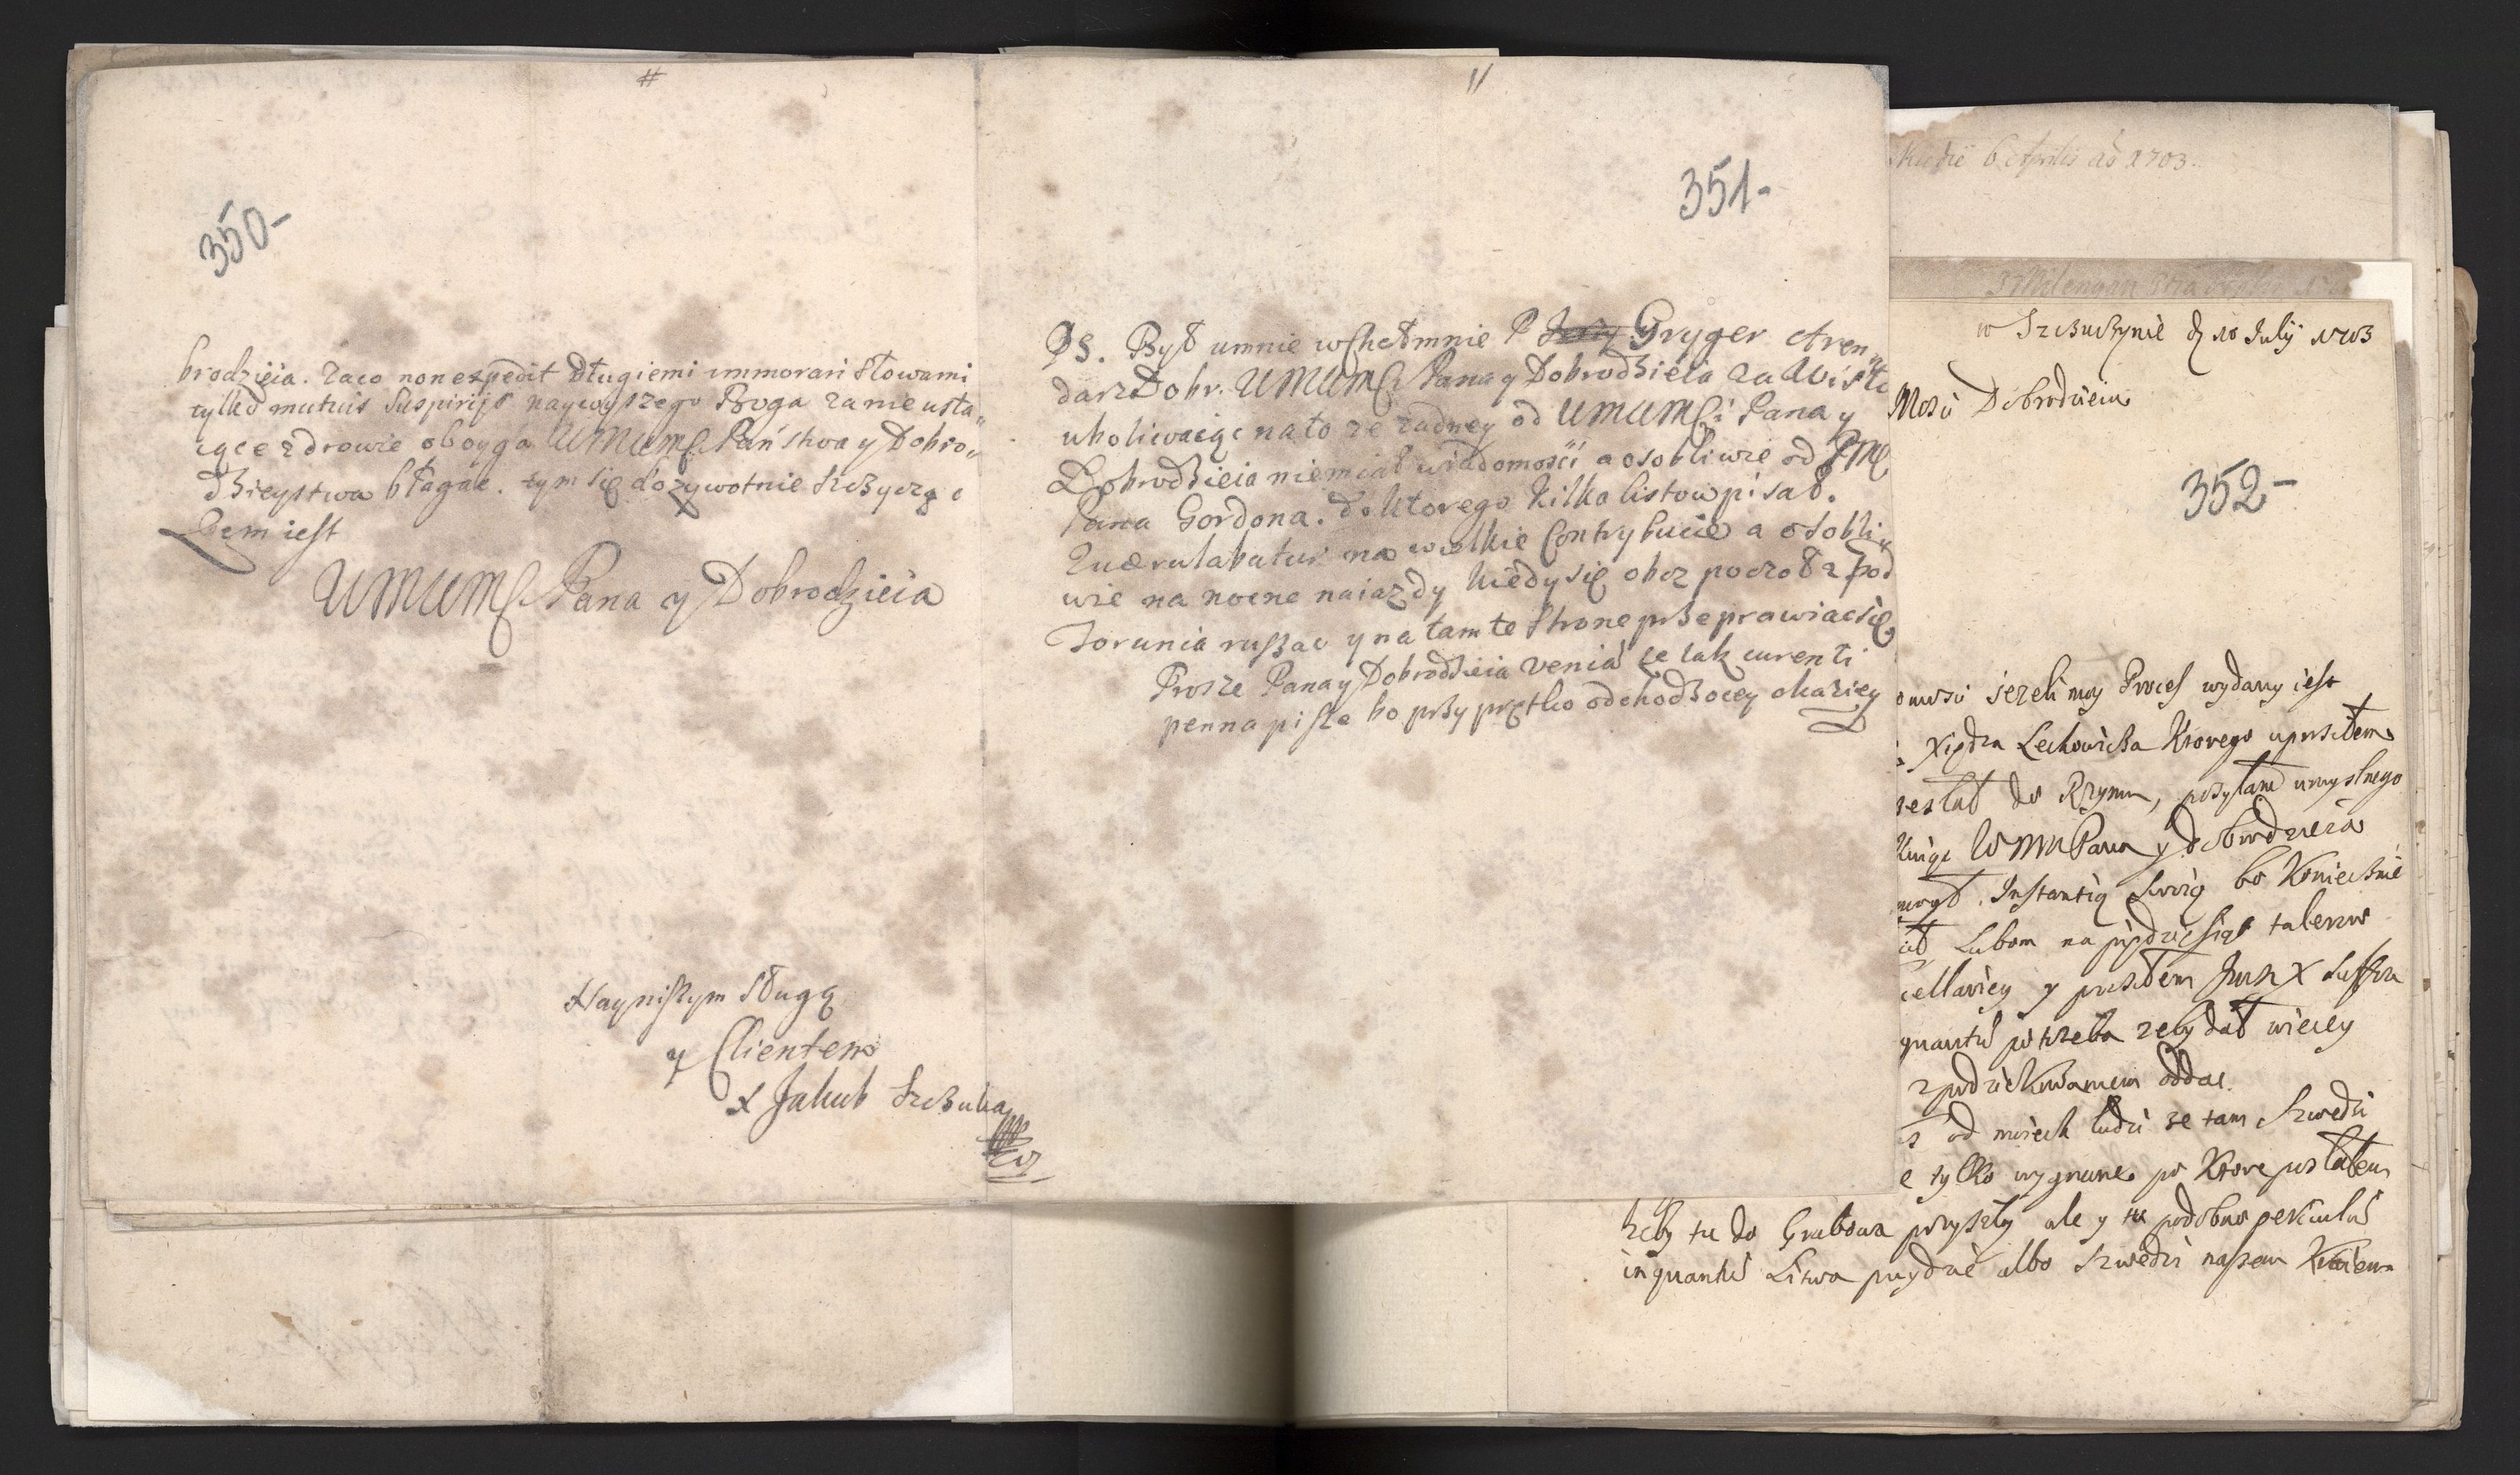 350-
brodzieia. Zaco non expedit długiemi immorari słowami
tylko mutuis suspirijs naywyszego Boga za nie usta"
iące zdrowie oboyga UMMMci Państwa y Dobro"
dzieystwa błagać. tym się dozywotnie szczyczę
zem iest
UMMMci Pana y Dobrodzieia
Nayniszym sługą
y Clientem
X Jakub Szczuka
351-
PS. Był umnie wChełmnie P Gryger Aren"
darz Dobr. UMMMci Pana y Dobrodzieia za Wisłą
uboliwaiąc na to ze zadney od UMMMci Pana y
Dobrodzieia niemiał wiadomości a osobliwie od JM
Pana Gordona. do ktorego kilka listow pisał.
Quærulabatur na wielkie Contrybucie a osobli"
wie na nocne naiazdy kiedy się oboz poczoł z pod
Torunia ruszac y na tamte strone przeprawiac się,
Prosze Pana y Dobrodzieia venią ze tak curenti
penna pisze bo przy prętko odchodzocey okaziey
6 Aprilis aõ 1703.
w Szczuczynie d 10 July 1703
Mosci Dobrodzieiu
352-
iezeli moy Proces wydany iest
Xiędza Lechowicza ktorego uprosiłem
do Rzymu, posyłam umyslnego
WMM Pana y dobrodzieia
Instantią swoią bo koniecznie
Lubom na piędziesiąt talerow
y prosiłem X Suffra
quantũ potrzeba zeby dał wiecey
z podziekowaniem oddac.
od moich ludzi ze tam Szwedzi
tylko wygnane po ktore posłałem
zeby tu do Grabowa przyszły ale y tu podobno periculũ
inquantũ Litwa przydzie albo Szwedzi naszem